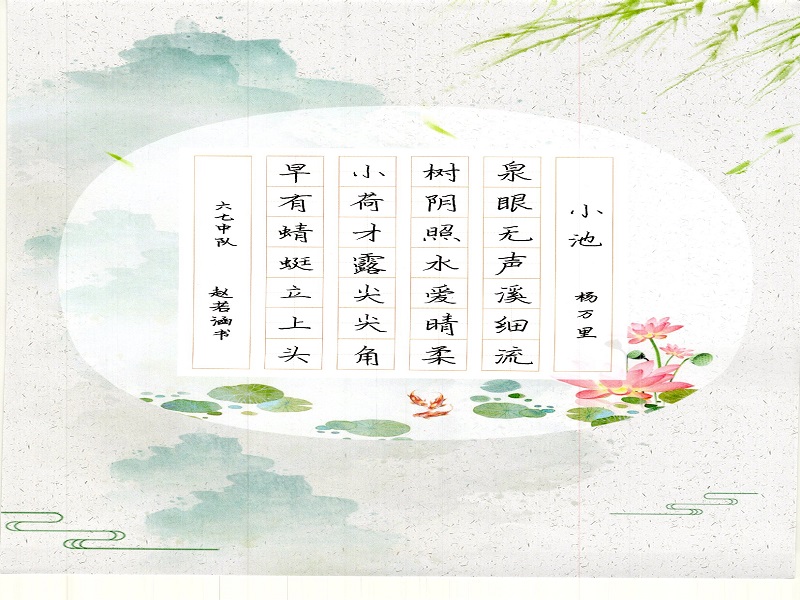 小池 杨万里
泉眼无声溪细流
树阴照水爱晴柔
小荷才露尖尖角
早有蜻蜓立上头
六七中队 赵若涵书